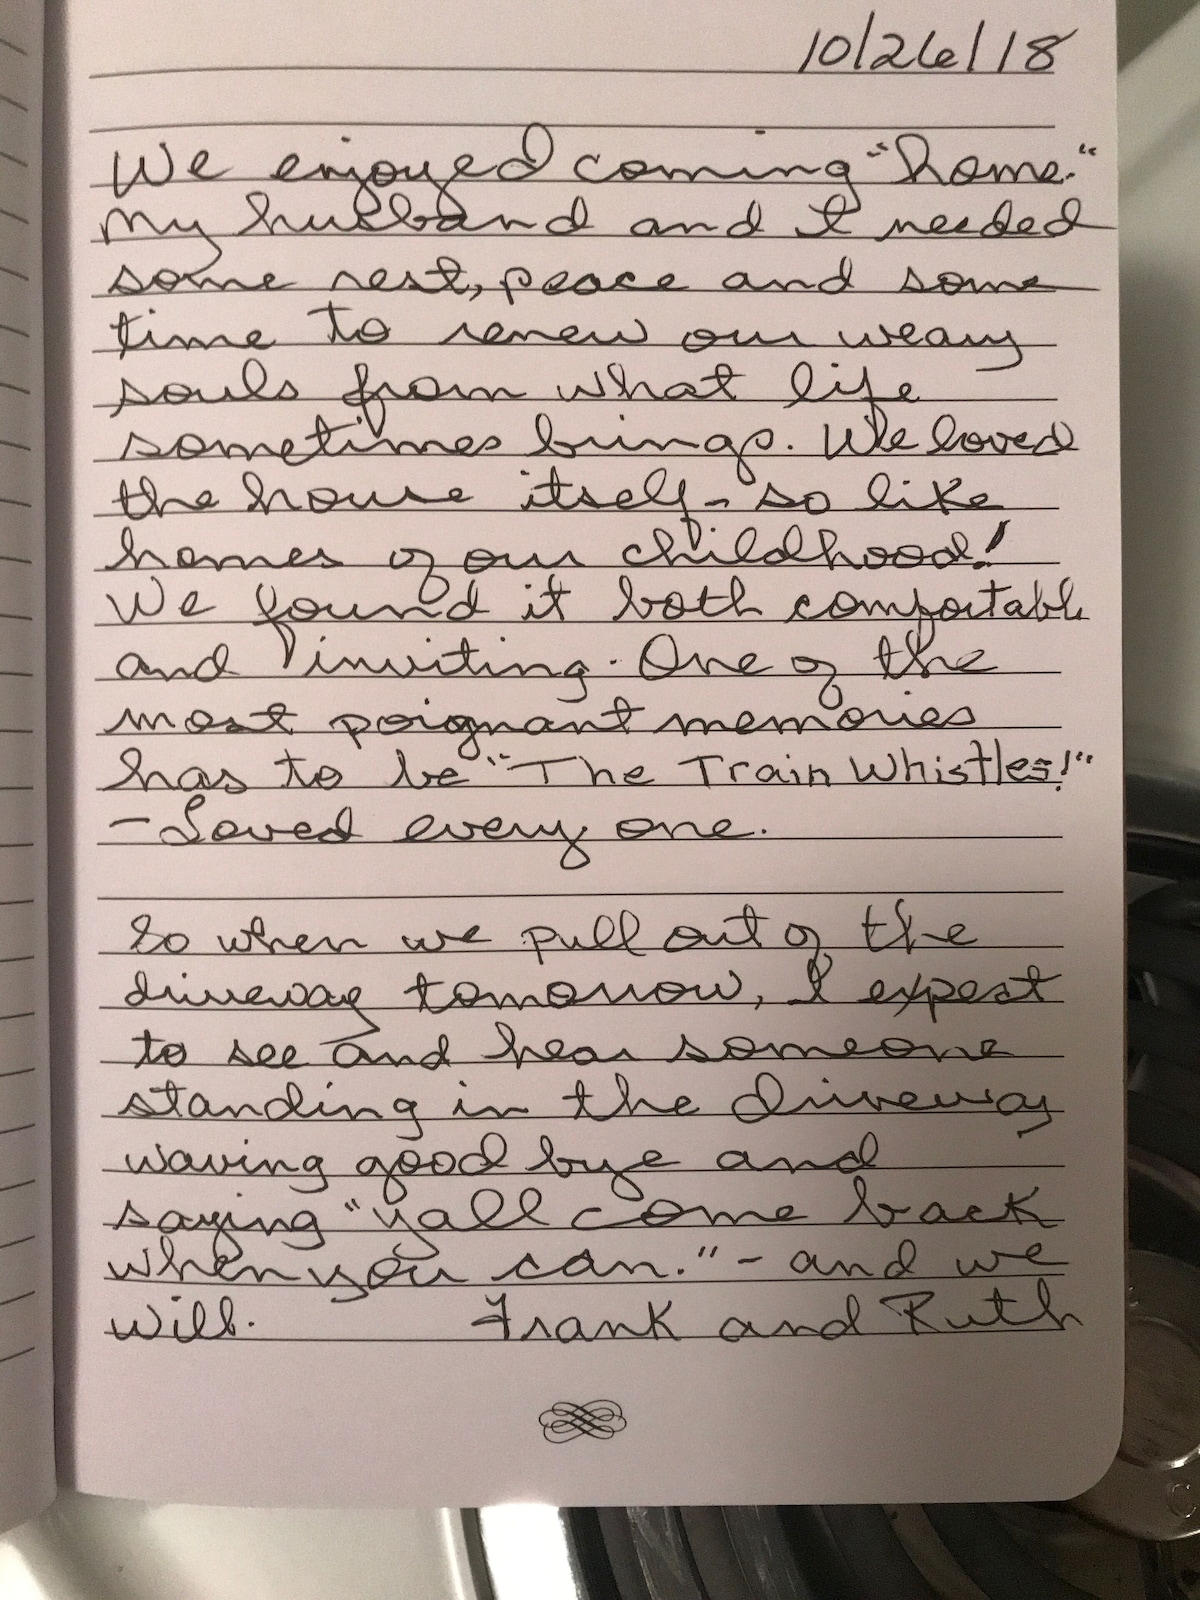 10/26/18
We enjoyed coming "home."
My husband and I needed
some rest, peace and some
time to renew our weary
souls from what life
sometimes brings. We loved
the house itself - so like
homes of our childhood!
We found it both comfortable
and inviting. One of the
most poignant memories
has to be "The Train Whistles!"
- Loved every one.
So when we pull out of the
driveway tomorrow, I expect
to see and hear someone
standing in the driveway
waving good bye and
saying "yall come back
when you can." - and we
will. Frank and Ruth